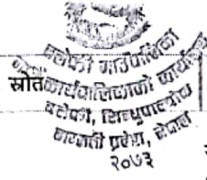 गाउँपालिका
स्रोत
कार्यपालिकाको कार्यालय
सिन्धुपाल्चोक
बागमती प्रदेश, नेपाल
२०७३